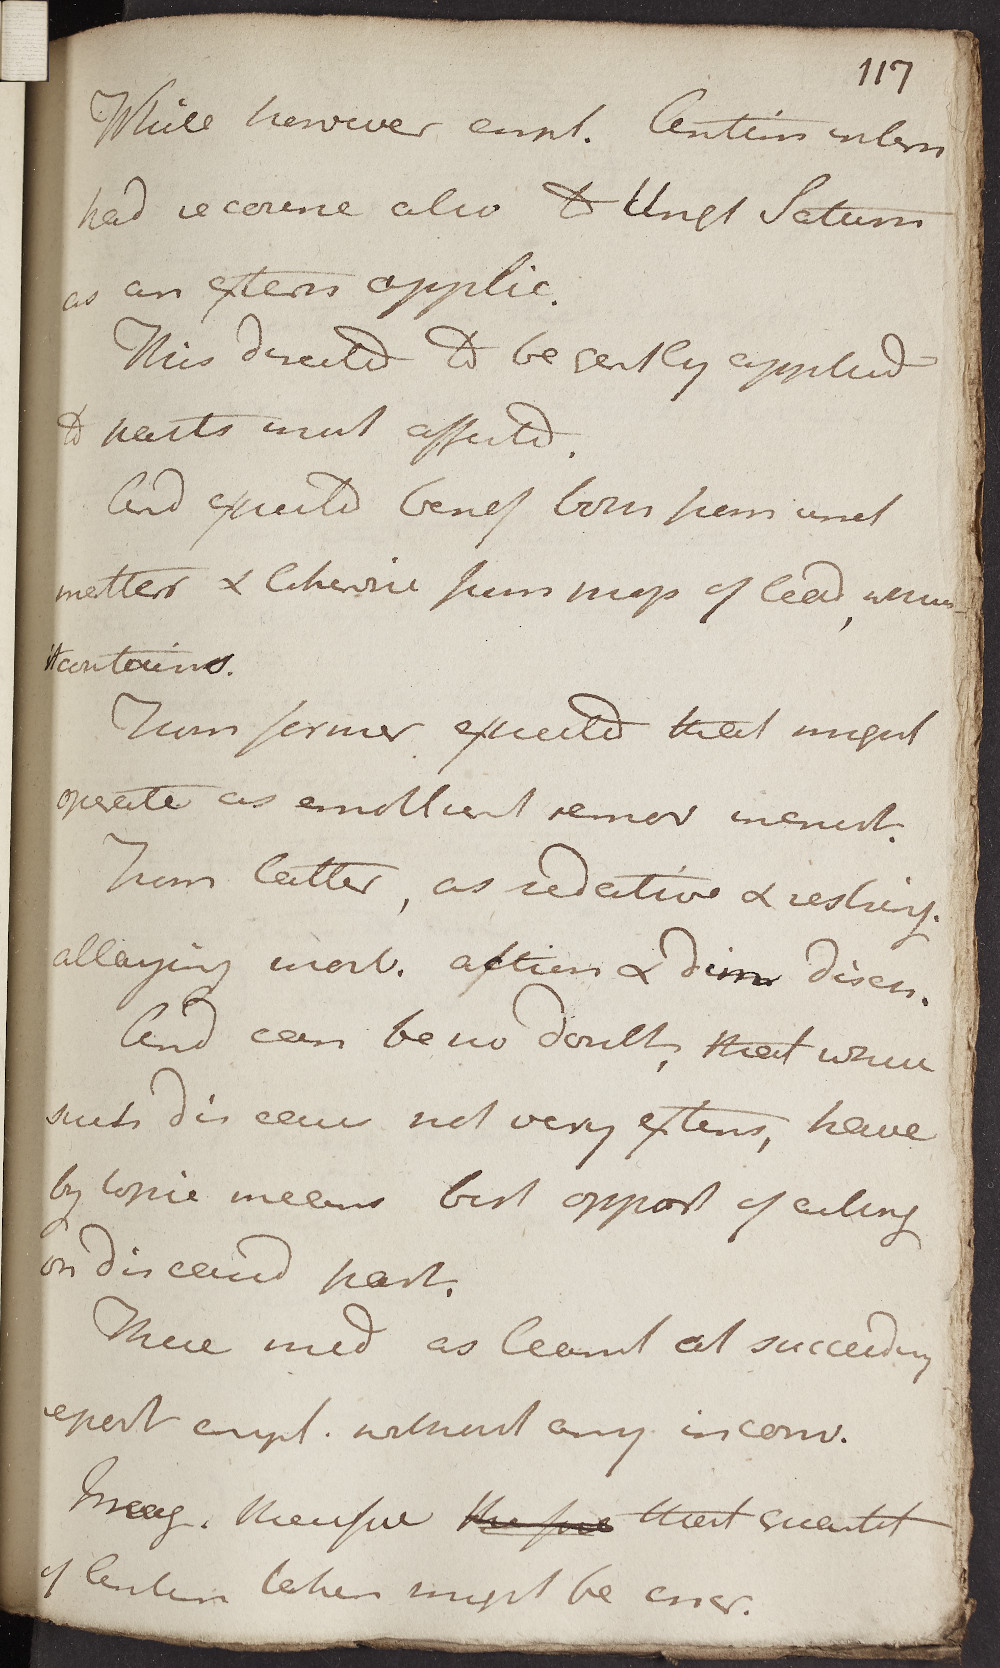 117
While however empl. Centim intern
had recourse also to Ungt Saturn
as an extern applic.
This directd to be gently applied
to parts most affectd.
And expectd benef both from unct
matter & likewise from impr of lead, whch
it contains.
From former expectd that might
operate as emollient remov incrust.
From latter, as sedative & restring.
allaying morb. action & dim discn.
And can be no doubt, that when
such diseases not very extens, have
by topic means best opport of acting
on diseased part.
These med as learnt at succeeding
report empl. without any inconv.
Imag. therefore that quantit
of taken might be encr.